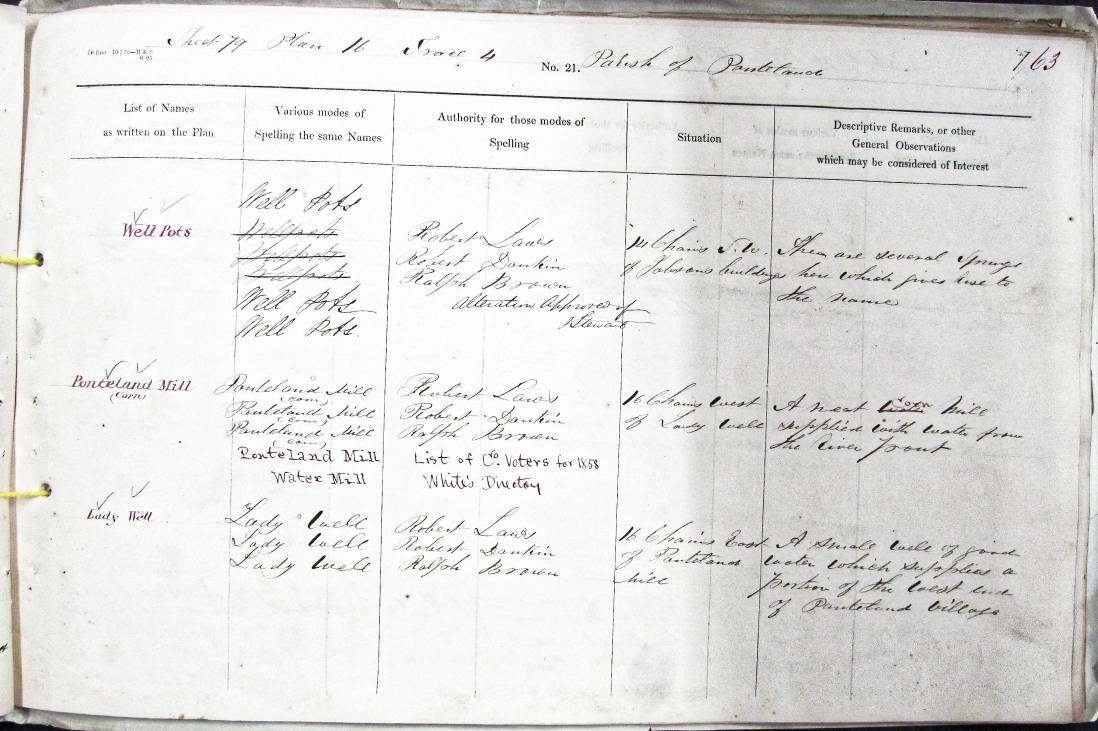 Sheet 79 Plan 16 Trace 4
No. 21. Parish of Ponteland
763
List of Names
as written on the Plan
Various modes of
Spelling the same Names
Authority for those modes of
Spelling
Situation
Descriptive Remarks, or other
General Observations
which may be considered of Interest
Well Pots
Well Pots
Wellpots
Wellpots
Wellpots
Well Pots
Well Pots.
Robert Laws
Robert Dankin
Ralph Brown
Alteration Approved of
JStewart
14 Chains S.W.
of Jobsons buildings
There are several Springs
here which gives rise to
the name
Ponteland Mill
(Corn)
Ponteland Mill
(corn)
Ponteland Mill
(corn)
Ponteland Mill
(corn)
Ponteland Mill
Water Mill
Robert Laws
Robert Dankin
Ralph Brown
List of Co. Voters for 1858
White's Directory
16 Chains West
of Lady Well
A neat Corn Mill
supplied with water from
the river pont
Lady Well
Lady Well
Lady Well
Lady Well
Robert Laws
Robert Dankin
Ralph Brown
16 Chains East
of Ponteland
Mill
A small well of good
water which supplies a
portion of the West end
of Ponteland Village